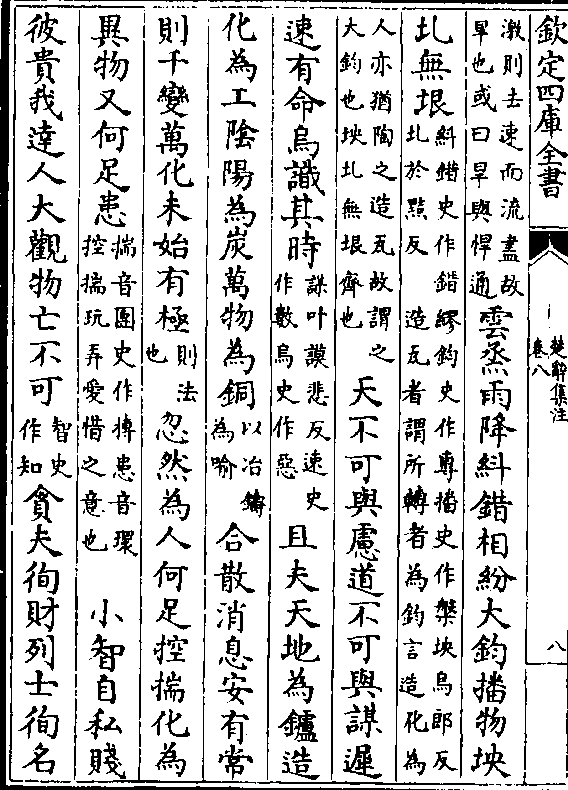 欽定四庫全書
楚辭集注
卷八
八
激則去速而流盡故
旱也或曰旱與悍通
雲烝雨降糾錯相紛大鈞播物坱
圠無垠
糾錯史作錯繆鈞史作專播史作槃坱烏郎反
圠於黠反 造瓦者謂所轉者為鈞言造化為
人亦猶陶之造瓦故謂之
大鈞也坱圠無垠齊也
天不可與慮道不可與謀遲
速有命烏識其時
謀叶謨悲反速史
作數烏史作惡
且夫天地為鑪造
化為工陰陽為炭萬物為銅
以冶鑄
為喻
合散消息安有常
則千變萬化未始有極
則法
也
忽然為人何足控揣化為
異物又何足患
揣音團史作摶患音環
控揣玩弄愛惜之意也
小智自私賤
彼貴我達人大觀物亡不可
智史
作知
貪夫徇財列士徇名